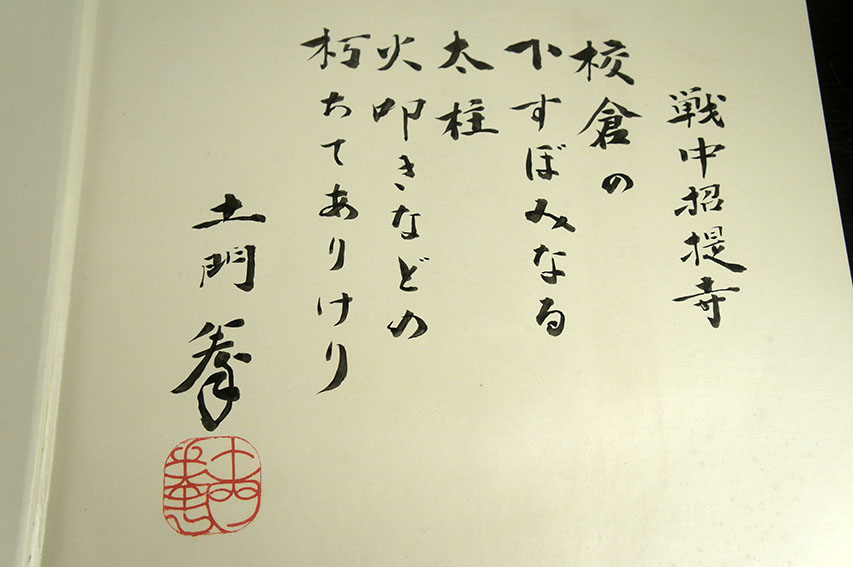 戦中招提寺
校倉の
下すぼみなる
太柱
火叩きなどの
朽ちてありけり
土門拳
土門拳